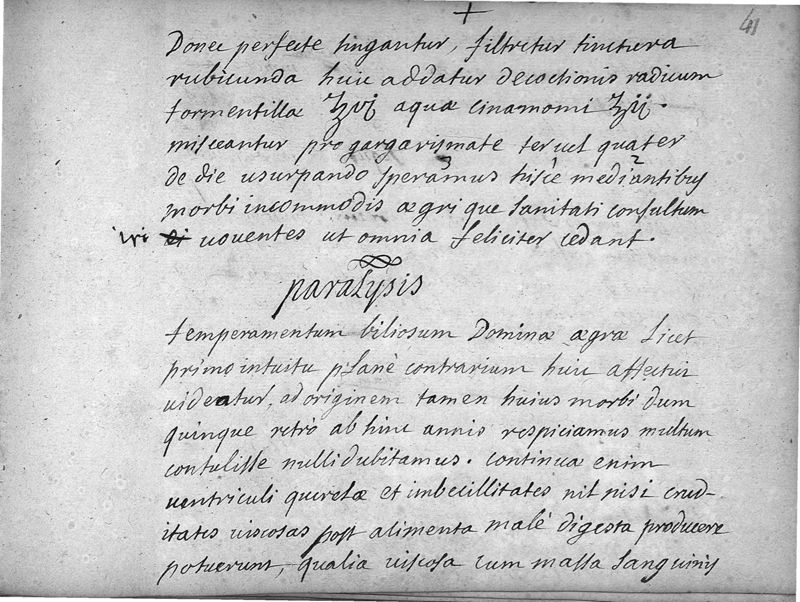 41
Donec perfecte tingantur, filtretur tinctura
rubicunda huic addatur decoctionis radicum
tormentillæ ℥vj aquæ cinamomi ℥ij.
misceantur pro gargarismate ter vel quater
de die usurpando speramus hisce mediantibus
morbi incommodis ægrique sanitati consultum
iri voventes ut omnia feliciter cedant.
paralysis
temperamentum biliosum Dominæ ægræ Licet
primo intuitu planè contrarium huic affectui
videatur, ad originem tamen huius morbi dum
quinque retrò ab hinc annis respiciamus multum
contulisse nulli dubitamus. continuæ enim
ventriculi querelæ et imbecillitates nil nisi crud-
itates viscosas post alimenta malè digesta producere
potuerunt, qualia viscosa cum massa sanguinis